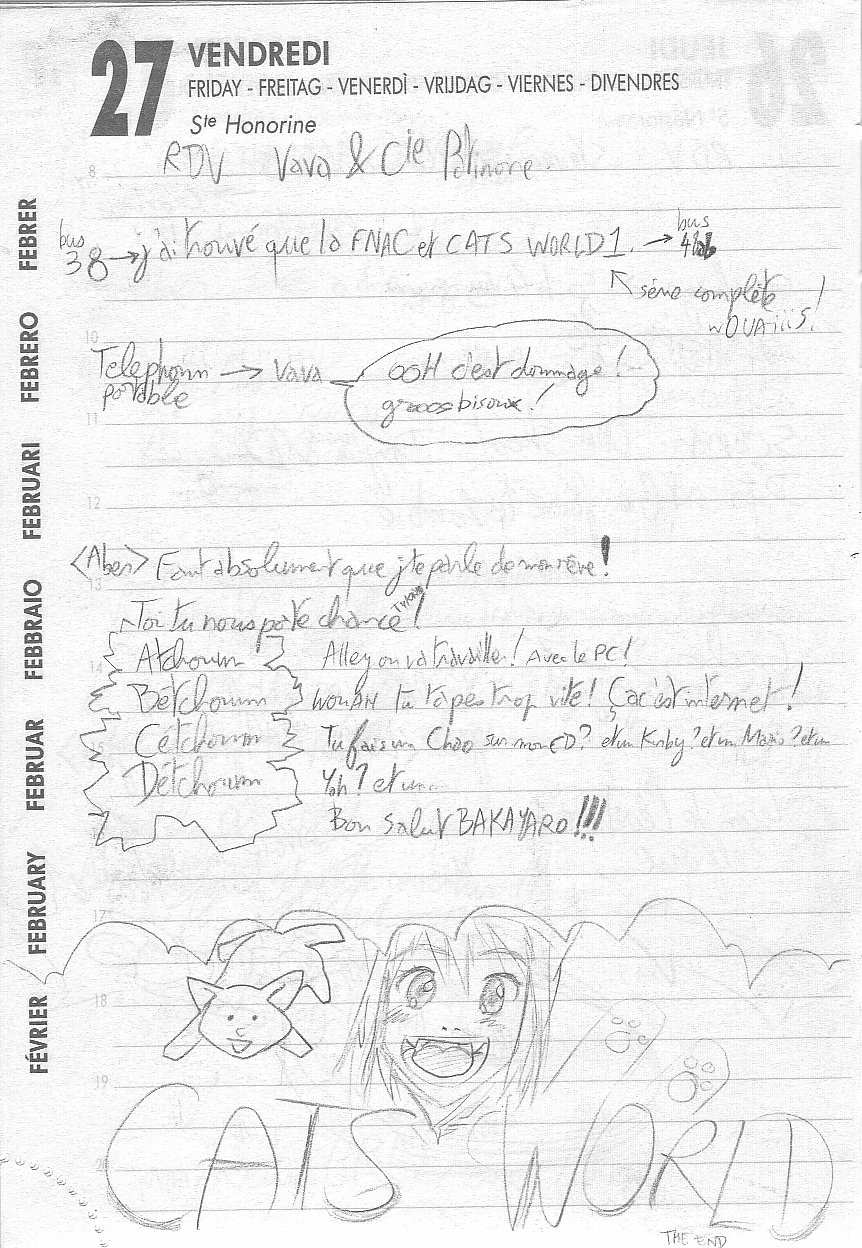 27 VENDREDI
FRIDAY - FREITAG - VENERDÌ - VRIJDAG - VIERNES - DIVENDRES
Ste Honorine
8
RDV Vava & Cie
bus
38 → j'ai trouvé que la FNAC et CATS WORLD 1. → bus
série complète
wOUAiiiS!
10
Telephonn → Vava
portable
OOH c'est dommage!
groos bisoux!
11
12
<Aben> Faut absolument que j'te parle de mon rêve!
13
Toi tu nous porte chance!
14
Atchoum Alley on va travailler! Avec le PC!
Bétchoum WOUAH tu tapes trop vite! Ça c'est internet!
15
Cétchoum Tu fais un Chao sur mon CD? et un Kirby? et un Mario? et un
Détchoum Yoh? et un...
Bon Salut BAKAYARO!!!
17
18
19
CATS WORLD
THE END
FÉVRIER FEBRUARY FEBRUAR FEBBRAIO FEBRUARI FEBRERO FEBRER